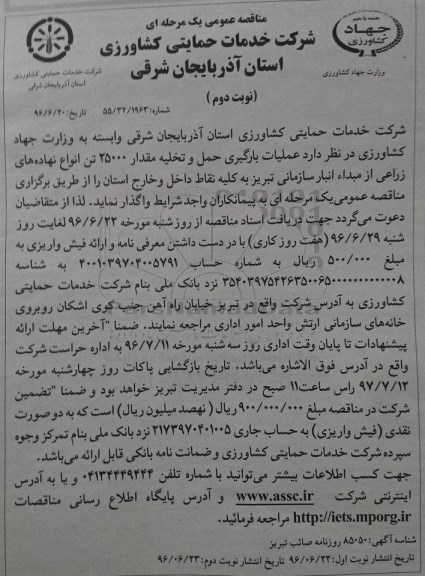 مناقصه عمومی یک مرحله ای
شرکت خدمات حمایتی کشاورزی
استان آذربایجان شرقی
(نوبت دوم)
جهاد
کشاورزی
وزارت جهاد کشاورزی
شرکت خدمات حمایتی کشاورزی
استان آذربایجان شرقی
شماره: ۵۵/۳۲/۱۹۶۳
تاریخ: ۹۶/۶/۲۰
شرکت خدمات حمایتی کشاورزی استان آذربایجان شرقی وابسته به وزارت جهاد
کشاورزی در نظر دارد عملیات بارگیری حمل و تخلیه مقدار ۲۵۰۰۰ تن انواع نهاده‌های
زراعی از مبداء انبار سازمانی تبریز به کلیه نقاط داخل وخارج استان را از طریق برگزاری
مناقصه عمومی یک مرحله ای به پیمانکاران واجد شرایط واگذار نماید. لذا از متقاضیان
دعوت می‌گردد جهت دریافت اسناد مناقصه از روز شنبه مورخه ۹۶/۶/۲۲ لغایت روز
شنبه ۹۶/۶/۲۹ (هفت روز کاری) با در دست داشتن معرفی نامه و ارائه فیش واریزی به
مبلغ ۵۰۰/۰۰۰ ریال به شماره حساب ۴۰۰۱۰۳۹۷۰۴۰۰۵۷۹۱ به شناسه
نزد بانک ملی بنام شرکت خدمات حمایتی
کشاورزی به آدرس شرکت واقع در تبریز خیابان راه آهن جنب کوی اشکان روبروی
خانه‌های سازمانی ارتش واحد امور اداری مراجعه نمایند. ضمنا "آخرین مهلت ارائه
پیشنهادات تا پایان وقت اداری روز سه شنبه مورخه ۹۶/۷/۱۱ به اداره حراست شرکت
واقع در آدرس فوق الاشاره می‌باشد. تاریخ بازگشایی پاکات روز چهارشنبه مورخه
۹۷/۷/۱۲ راس ساعت۱۱ صبح در دفتر مدیریت تبریز خواهد بود و ضمنا "تضمین
شرکت در مناقصه مبلغ ۹۰۰/۰۰۰/۰۰۰ ریال ( نهصد میلیون ریال) است که به دو صورت
نقدی (فیش واریزی) به حساب جاری ۲۱۷۳۹۷۰۴۰۱۰۰۵ نزد بانک ملی بنام تمرکز وجوه
سپرده شرکت خدمات حمایتی کشاورزی و ضمانت نامه بانکی قابل ارائه می‌باشد.
جهت کسب اطلاعات بیشتر می‌توانید با شماره تلفن ۰۴۱۳۴۴۴۹۴۴۴ و یا به آدرس
اینترنتی شرکت www.assc.ir و آدرس پایگاه اطلاع رسانی مناقصات
http://iets.mporg.ir مراجعه فرمائید.
شناسه آگهی: ۸۵۰۵۰ روزنامه صائب تبریز
تاریخ انتشار نوبت اول: ۹۶/۰۶/۲۲ تاریخ انتشار نوبت دوم: ۹۶/۰۶/۲۳